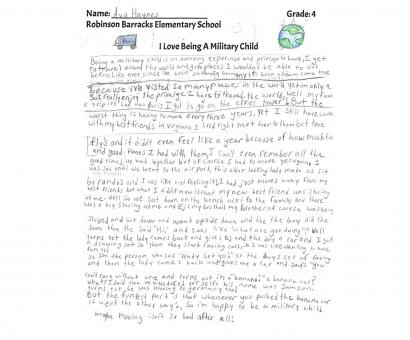 Name: Ava Haynes Grade: 4
Robinson Barracks Elementary School
I Love Being A Military Child
Being a military child is an amazing experince and privlage to have, I get
to travel around the world and go to places I wouldn't be able to visit
before. Like ever since I've been stationed in germany it's been a dream come true
because iv'e visited so many places in the world yet im only 9.
So I really enjoy the privlage I have to travel the world, well my favorite
trip was Paris I got to go on the eiffel tower. But the
worst thing is having to move every three years, yet I still have contact
with my best friends in virginia I lived right next door to them but time
fly's and it didn't even feel like a year because of how much fun
and good times I had with them, I can't even remember all the
good times we had together but of course I had to move yet again I
was sad until we went to the air port, this older looking lady made us sit
by randos and I was like not feeling it, I had just moved away from my
best friends but what I didn't now is that my new best friend was staring
at me. Well so we sat down on the bench next to the family and there
was a boy staring at me and Eli my brother, my brother of course was being
stupid and sat down and went upside down and the boy did the
same then he said "Hi" and I was like "what are you doing"? Well
turns out the lady comes back and gives Eli and the boy a car and I got
a drawing set so then they start racing cars, so I was like wanting to have
fun to!
so I'm the person who said "ready set go!" so the boys set of racing
and then the lady comes back and gives me a car and says "you
can't race without one and turns out its a "banana" a banana car?
what? I said then we introduced our selfs his name was Samson.
turns out, he was moving to germany too!
But the funiest part is that whenever you pushed the banana car
it went the other way's, so I'm happy to be a military child
maybe moving isn't so bad after all!